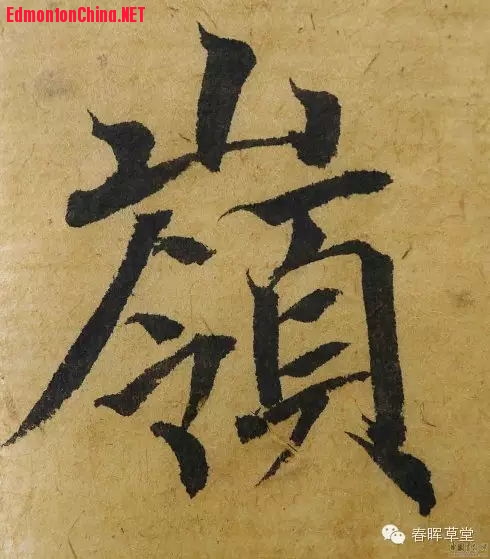 EdmontonChina.NET
嶺
春晖草堂